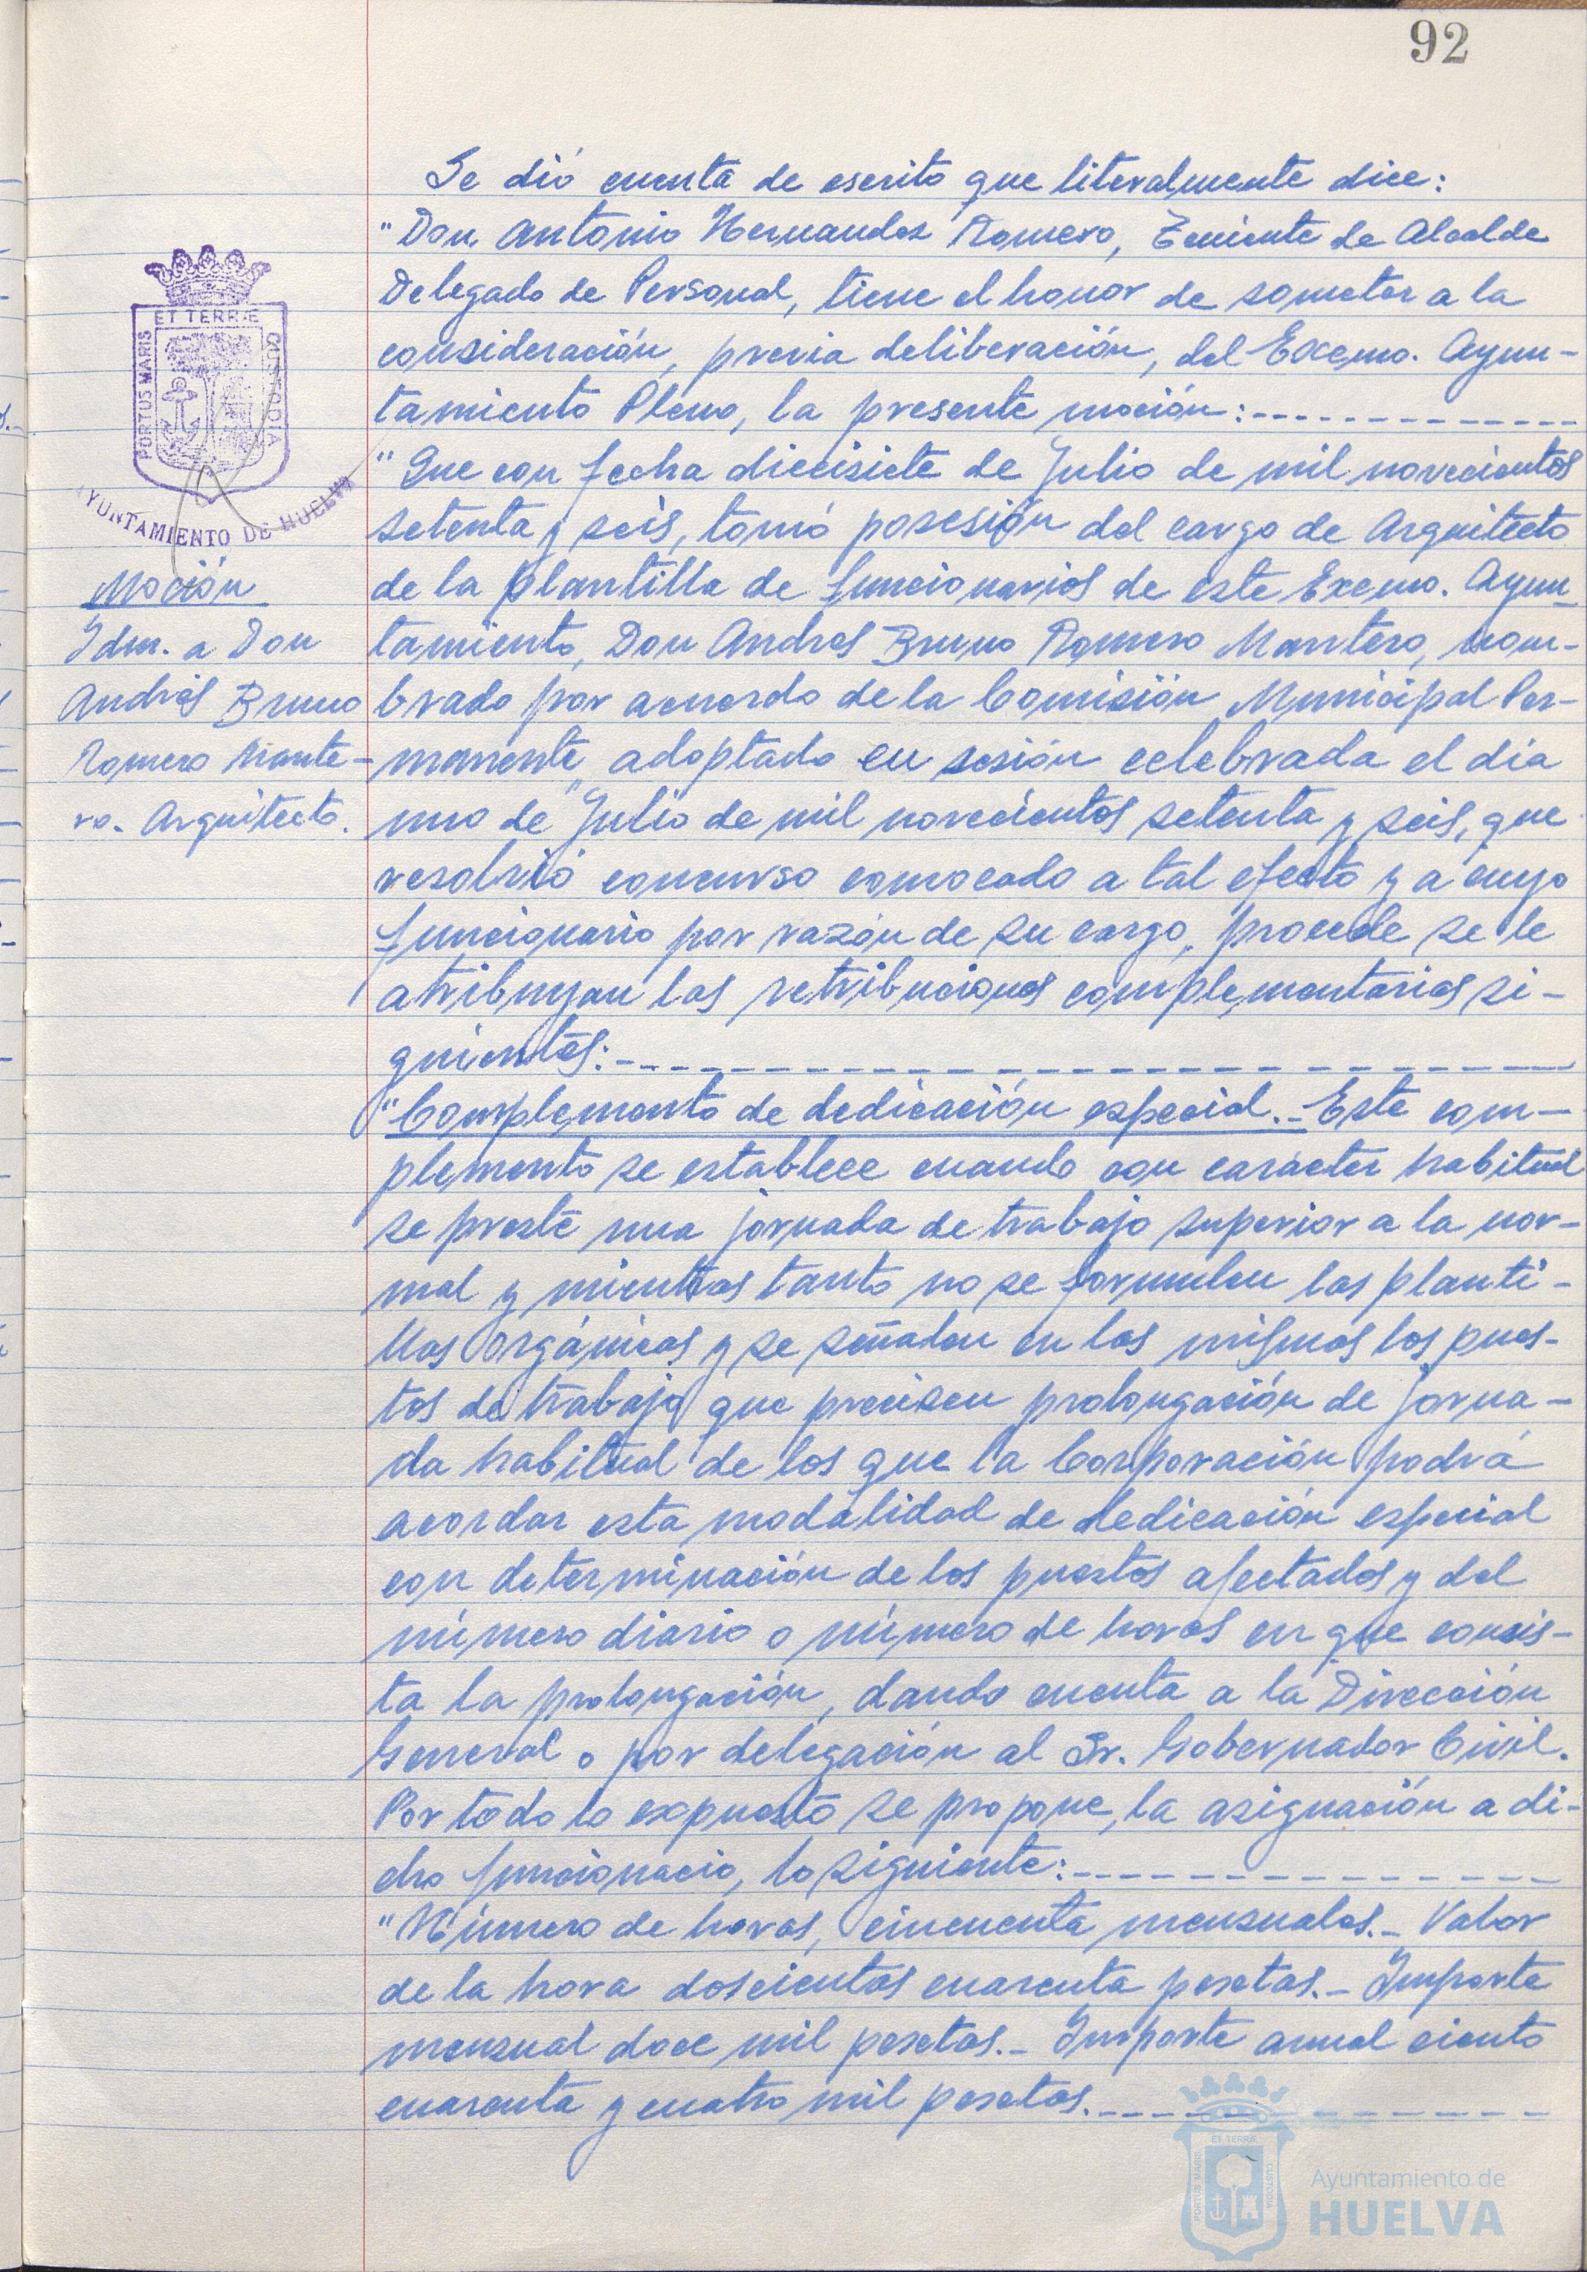 92
Se dió cuenta de escrito que literalmente dice:
"Don Antonio Hernandez Romero, Teniente de Alcalde
Delegado de Personal, tiene el honor de someter a la
consideración, previa deliberación, del Excmo. Ayun-
tamiento Pleno, la presente moción:
"Que con fecha diecisiete de Julio de mil novecientos
setenta y seis, tomó posesión del cargo de Arquitecto
de la plantilla de funcionarios de este Excmo. Ayun-
tamiento, Don Andres Bruno Romero Mantero, nom-
brado por acuerdo de la Comisión Municipal Per-
manente, adoptado en sesión celebrada el dia
uno de Julio de mil novecientos setenta y seis, que
resolvió concurso convocado a tal efecto y a cuyo
funcionario por razón de su cargo, procede se le
atribuyan las retribuciones complementarias si-
guientes:
"Complemento de dedicación especial.- Este com-
plemento se establece cuando con carácter habitual
se preste una jornada de trabajo superior a la nor-
mal y mientras tanto no se formulen las planti-
llas orgánicas y se señalen en las mismas los pues-
tos de trabajo que precisen prolongación de jorna-
da habitual de los que la Corporación podrá
acordar esta modalidad de dedicación especial
con determinación de los puestos afectados y del
número diario o número de horas en que consis-
ta la prolongación, dando cuenta a la Dirección
General o por delegación al Sr. Gobernador Civil.
Por todo lo expuesto se propone, la asignación a di-
cho funcionario, lo siguiente:
"Número de horas, cincuenta mensuales.- Valor
de la hora doscientas cuarenta pesetas.- Importe
mensual doce mil pesetas.- Importe anual ciento
cuarenta y cuatro mil pesetas.
ET TERRÆ
PORTUS MARIS
CUSTODIA
AYUNTAMIENTO DE HUELVA
Moción
Idm. a Don
Andrés Bruno
Romero Mante-
ro. Arquitecto.
ET TERRÆ
PORTUS MARIS
CUSTODIA
Ayuntamiento de
HUELVA